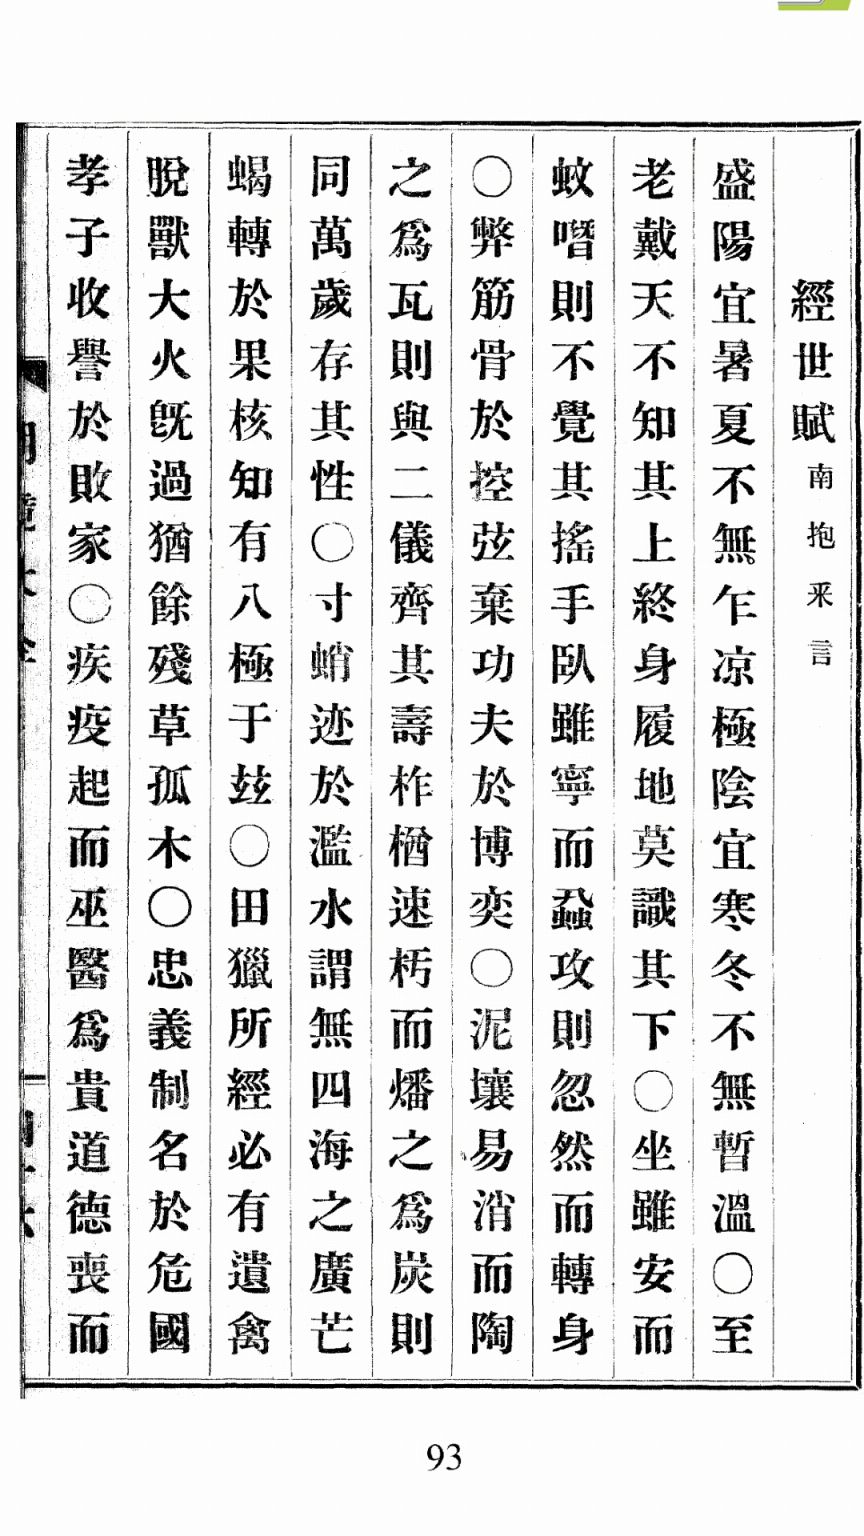 經世賦南抱釆言
盛陽宜暑夏不無乍凉極陰宜寒冬不無暫溫〇至
老戴天不知其上終身履地莫識其下〇坐雖安而
蚊噆則不覺其搖手臥雖寧而蝨攻則忽然而轉身
〇弊筋骨於控弦棄功夫於博奕〇泥壤易消而陶
之爲瓦則與二儀齊其壽柞楢速朽而燔之爲炭則
同萬歲存其性〇寸蛸迹於濫水謂無四海之廣芒
蝎轉於果核知有八極于玆〇田獵所經必有遺禽
脫獸大火旣過猶餘殘草孤木〇忠義制名於危國
孝子收譽於敗家〇疾疫起而巫醫爲貴道德喪而
93